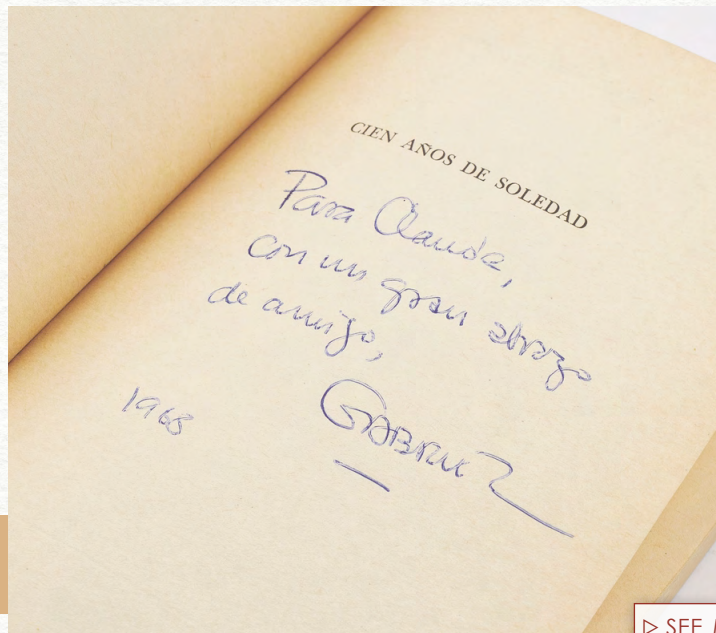 CIEN AÑOS DE SOLEDAD
Para Claude,
con un gran abrazo
de amigo,
1968
GABRIEL
▷ SEE